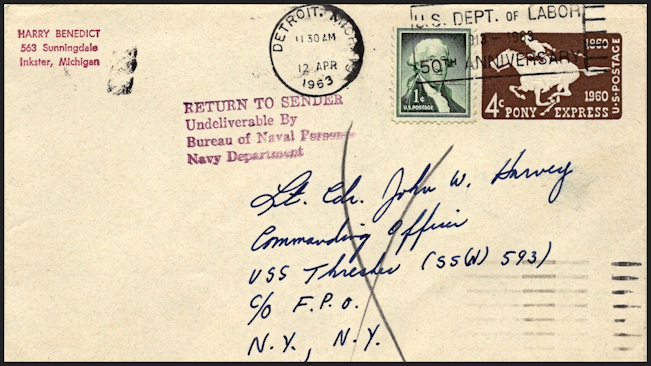 HARRY BENEDICT
563 Sunningdale
Inkster, Michigan
DETROIT, MICHIGAN
11 30 AM
12 APR
1963
U.S. DEPT. OF LABOR
1913 - 1963
50TH ANNIVERSARY
1¢
U.S. POSTAGE
1860
4c PONY EXPRESS 1960
U.S. POSTAGE
RETURN TO SENDER
Undeliverable By
Bureau of Naval
Navy Department
Lt. Cdr. John W. Harvey
Commanding Officer
USS Thresher (SS(N) 593)
c/o F.P.O.
N.Y., N.Y.